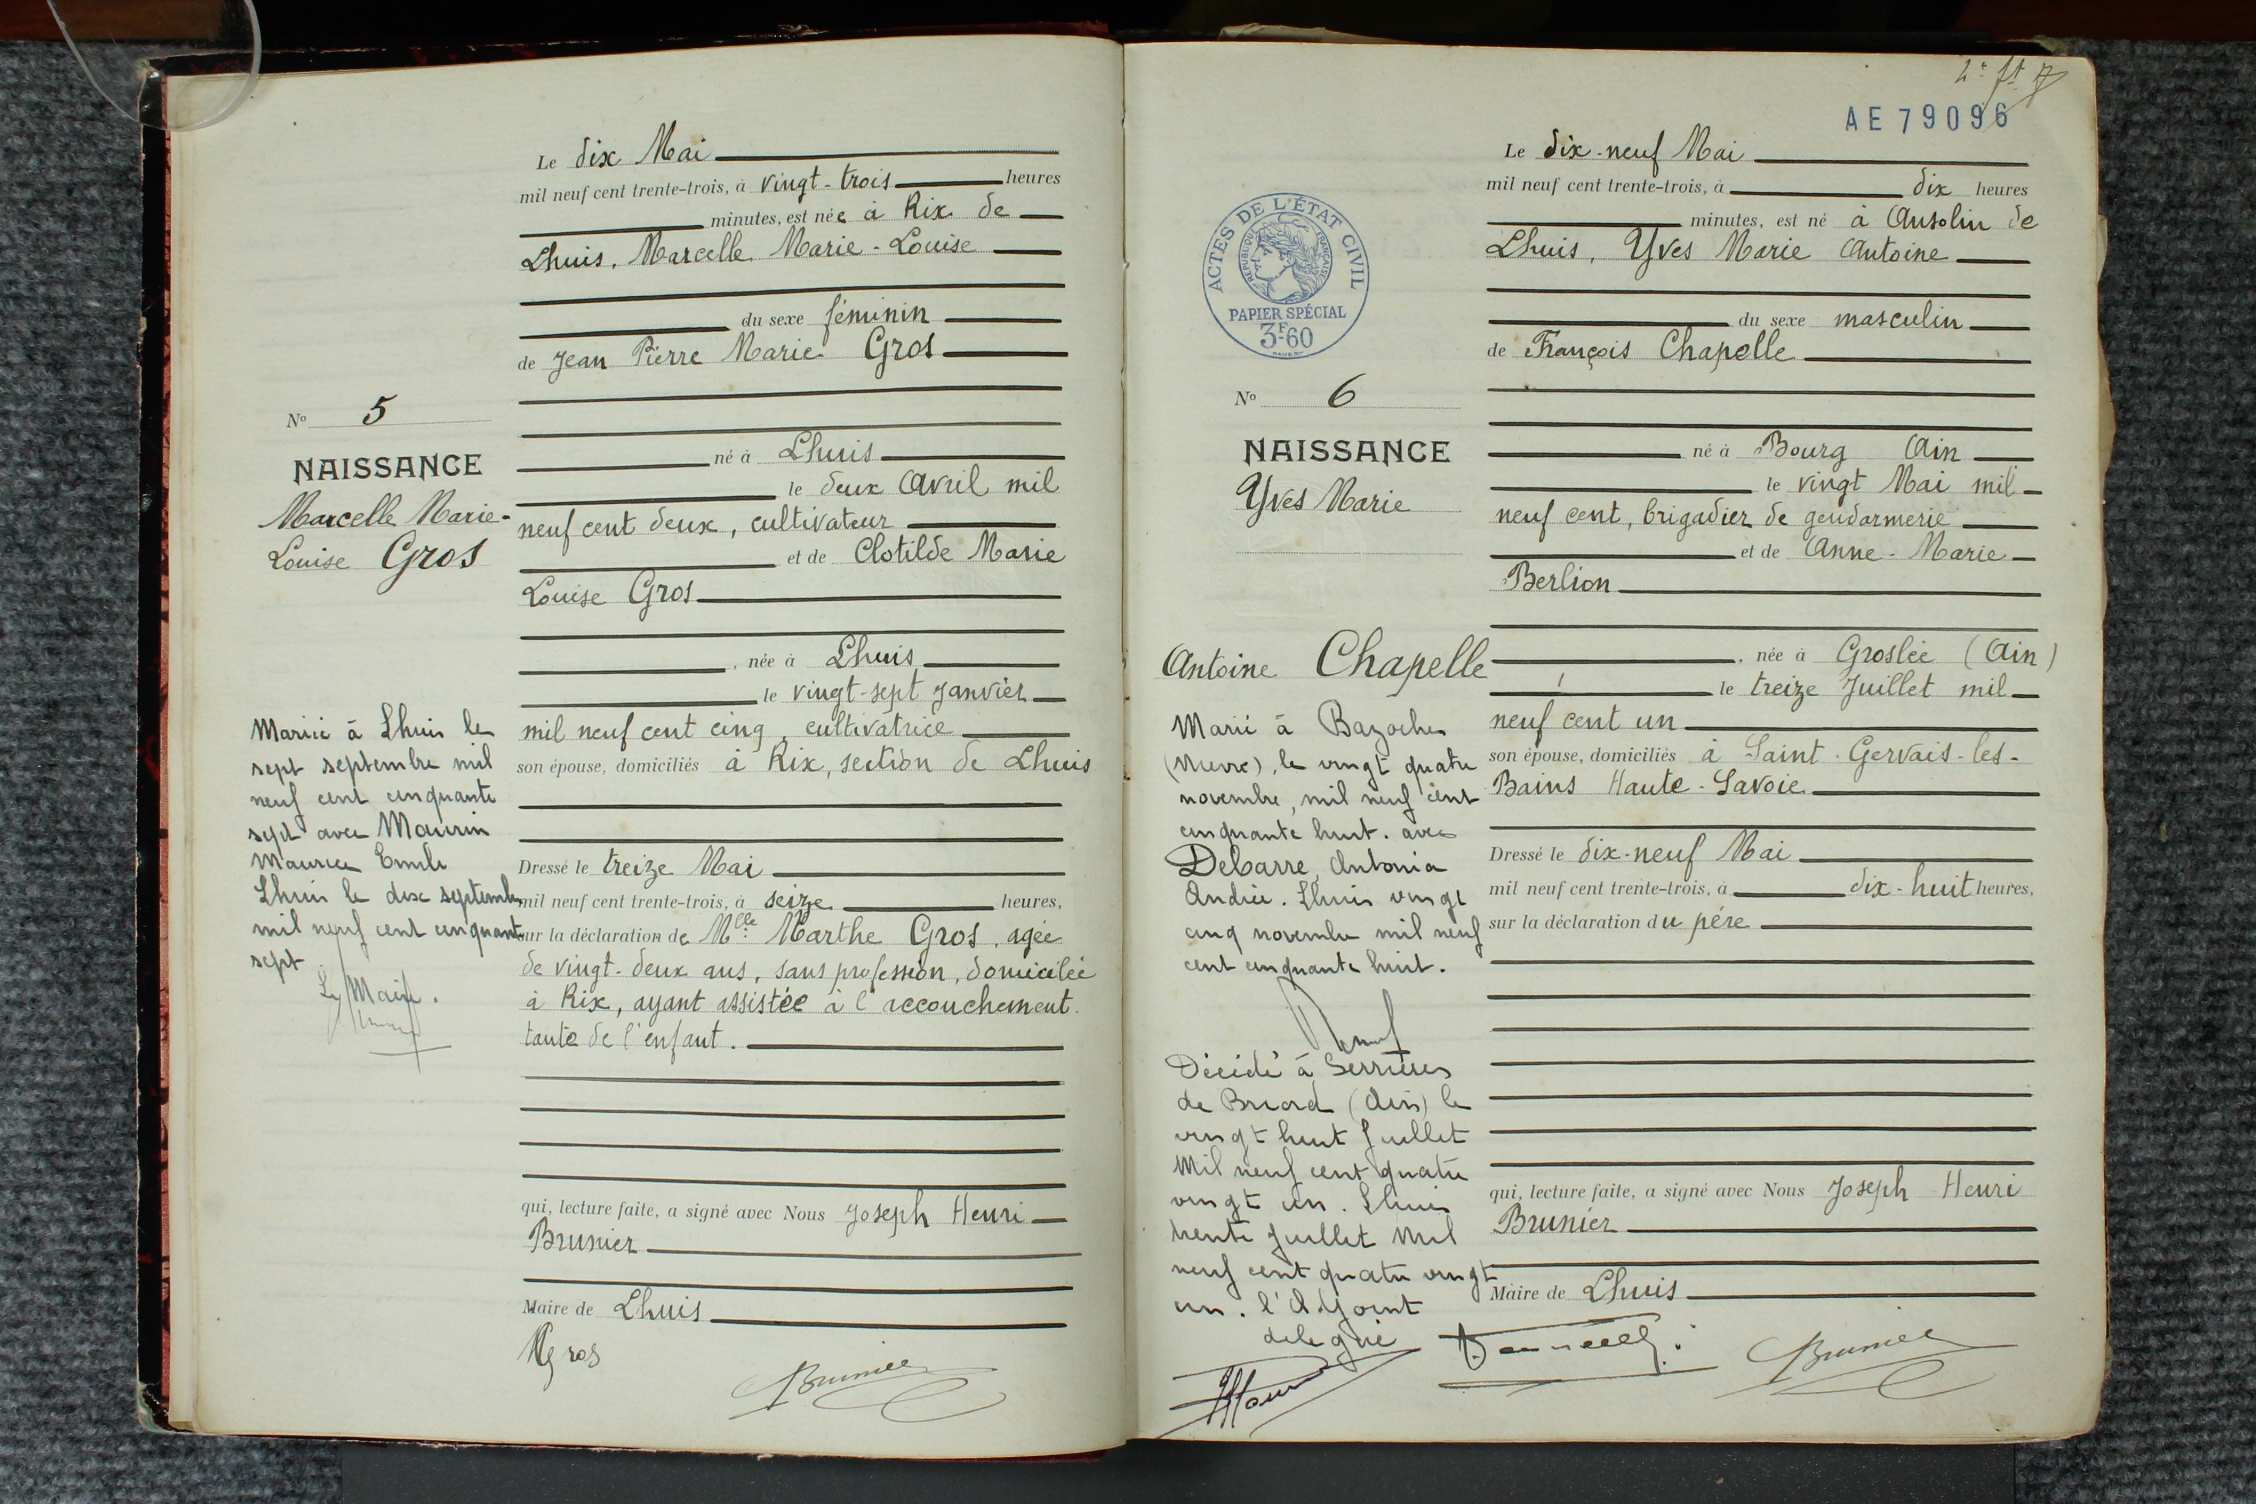 Le dix Mai
mil neuf cent trente-trois, à vingt-trois heures
minutes, est née à Rix de
Lhuis, Marcelle Marie-Louise
du sexe féminin
de Jean Pierre Marie Gros
né à Lhuis
le deux Avril mil
neuf cent deux, cultivateur
et de Clotilde Marie
Louise Gros
, née à Lhuis
le vingt-sept Janvier
mil neuf cent cinq, cultivatrice
son épouse, domiciliés à Rix, section de Lhuis
Dressé le treize Mai
mil neuf cent trente-trois, à seize heures,
sur la déclaration de Mlle Marthe Gros, agée
de vingt-deux ans, sans profession, domiciliée
à Rix, ayant assistée à l'accouchement.
tante de l'enfant.
qui, lecture faite, a signé avec Nous Joseph Henri
Brunier
Maire de Lhuis
MGros
Brunier
No 5
NAISSANCE
Marcelle Marie-
Louise Gros
Mariée à Lhuis le
sept septembre mil
neuf cent cinquante
sept avec Maurin
Maurice Emile
Lhuis le dix septembre
mil neuf cent cinquante
sept
Le Maire.
AE 79096
Le dix-neuf Mai
mil neuf cent trente-trois, à dix heures
minutes, est né à Ansolin de
Lhuis, Yves Marie Antoine
du sexe masculin
de François Chapelle
né à Bourg Ain
le vingt Mai mil
neuf cent, brigadier de gendarmerie
et de Anne-Marie
Berlion
, née à Groslée (Ain)
le treize Juillet mil
neuf cent un
son épouse, domiciliés à Saint-Gervais-les-
Bains Haute-Savoie
Dressé le dix-neuf Mai
mil neuf cent trente-trois, à dix-huit heures,
sur la déclaration du père
qui, lecture faite, a signé avec Nous Joseph Henri
Brunier
Maire de Lhuis
Brunier
ACTES DE L'ÉTAT CIVIL
RÉPUBLIQUE FRANÇAISE
PAPIER SPÉCIAL
3F60
No 6
NAISSANCE
Yves Marie
Antoine Chapelle
Marié à Bazoches
(Nièvre), le vingt quatre
novembre, mil neuf cent
cinquante huit. avec
Debarre, Antonia
Andrée. Lhuis vingt
cinq novembre mil neuf
cent cinquante huit.
Décédé à Serrières
de Briord (Ain) le
vingt huit Juillet
Mil neuf cent quatre
vingt un. Lhuis
trente Juillet Mil
neuf cent quatre vingt
un. l'Adjoint
délégué